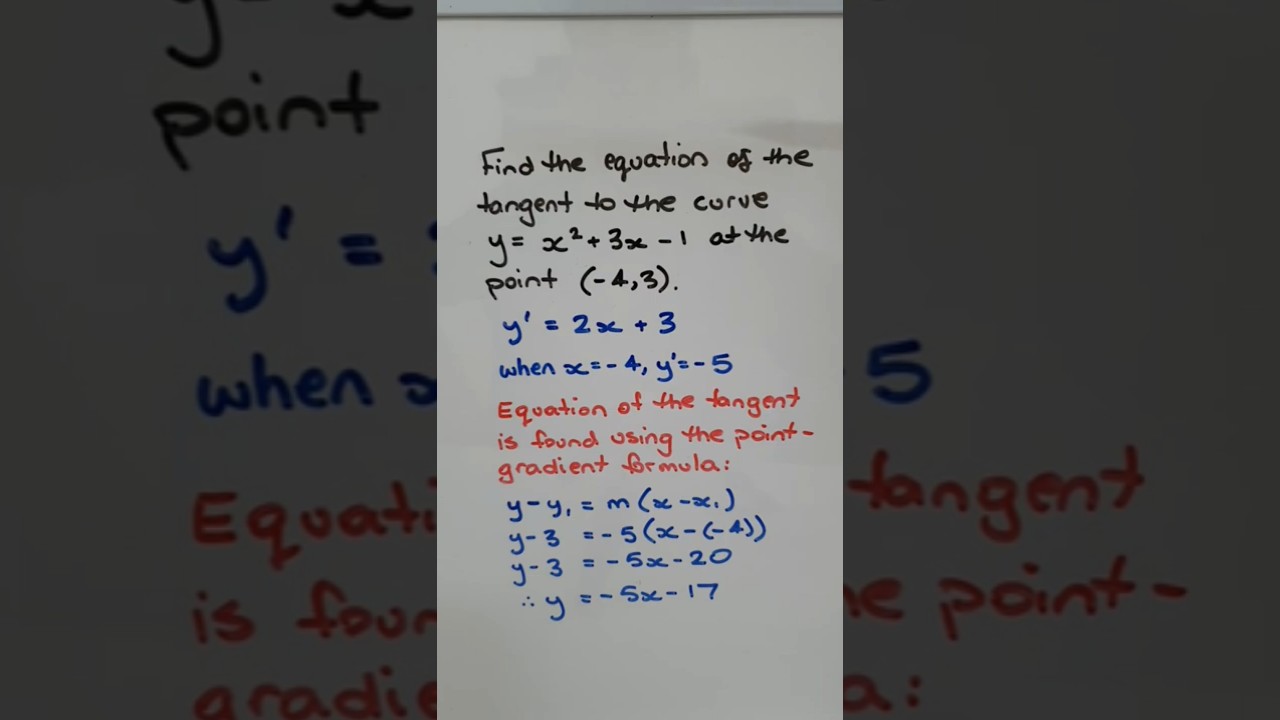 Find the equation of the
tangent to the curve
y = x² + 3x - 1 at the
point (-4,3).
y' = 2x + 3
when x = -4, y' = -5
Equation of the tangent
is found using the point-
gradient formula:
y - y₁ = m(x - x₁)
y - 3 = -5(x - (-4))
y - 3 = -5x - 20
∴ y = -5x - 17